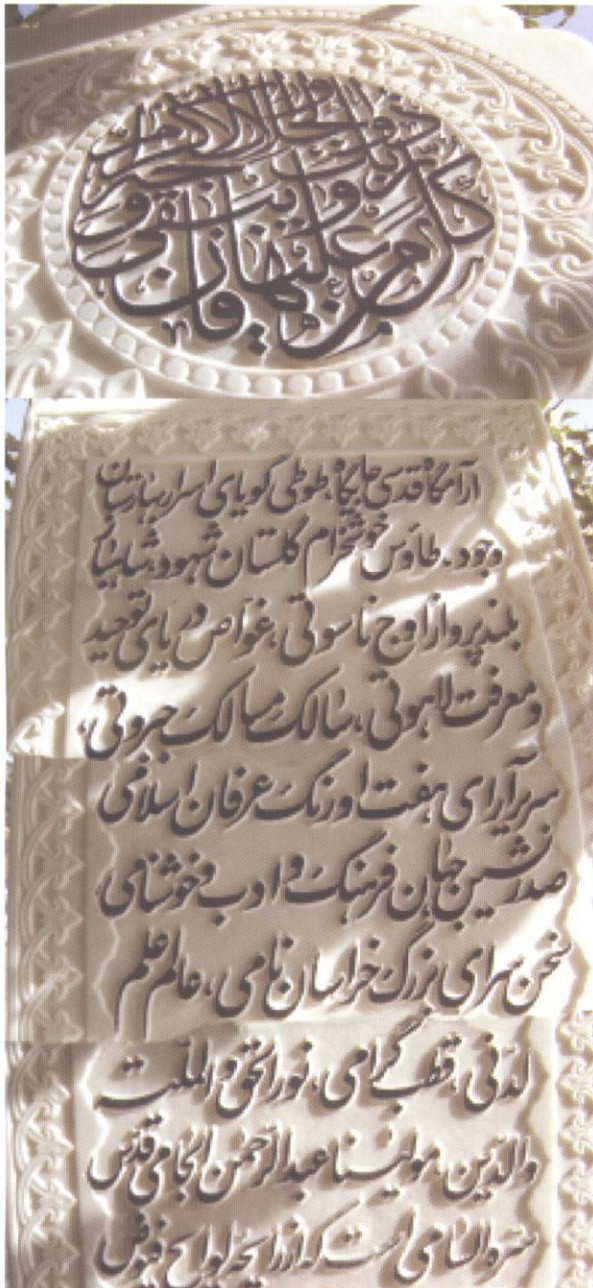 كل من عليها فان و يبقى وجه ربك ذو الجلال و الاكرام
آرامگاه قدسی جایگاه طوطی گویای اسرار بهارستان
وجود، طاؤس خوشخرام گلستان شهود، شاهباز
بلندپرواز اوج ناسوتی، غواص دریای توحید
و معرفت لاهوتی، سالک مسالک جبروتی،
سریرآرای هفت اورنگ عرفان اسلامی
صدرنشین جهان فرهنگ و ادب و خوشنامی
سخن سرای بزرگ خراسان نامی، عالم علم
لدنی، قطب گرامی، نورالحق و الملته
والدین، مولینا عبدالرحمن الجامی قدس
سره السامی است که از رایحه لوایح فیوض